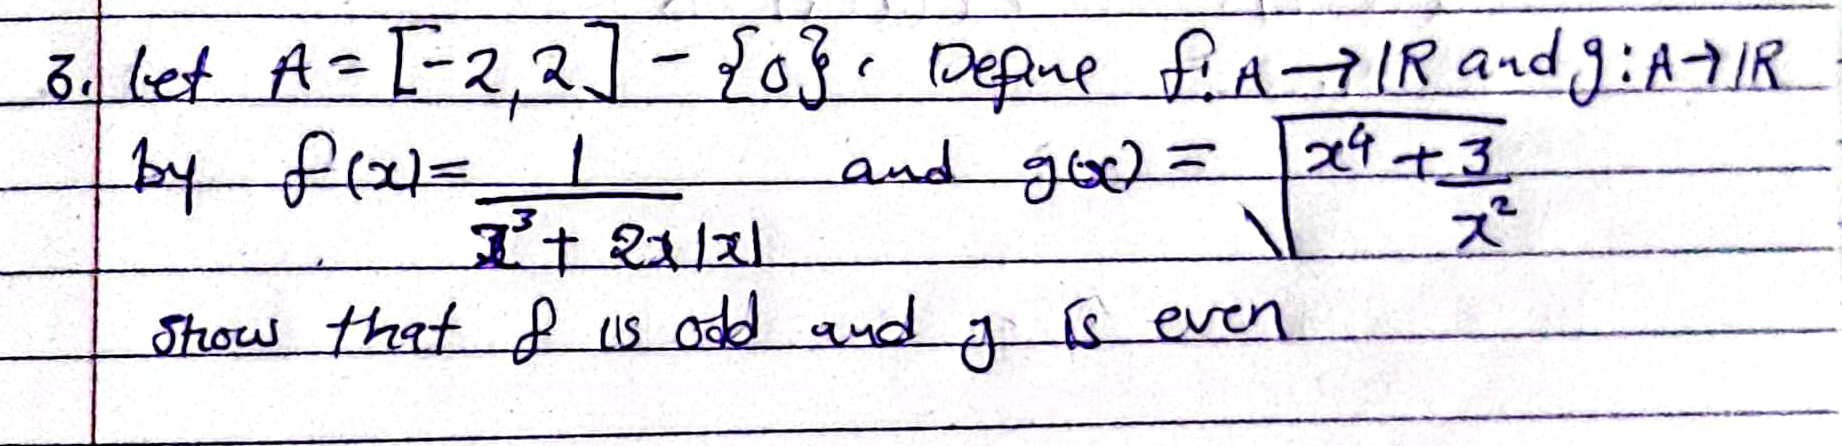 3. Let A = [-2, 2] - {0}. Define f: A → ℝ and g: A → ℝ
by f(x) = 1/(x³ + 2x|x|) and g(x) = √(x⁴ + 3/x²)
Show that f is odd and g is even